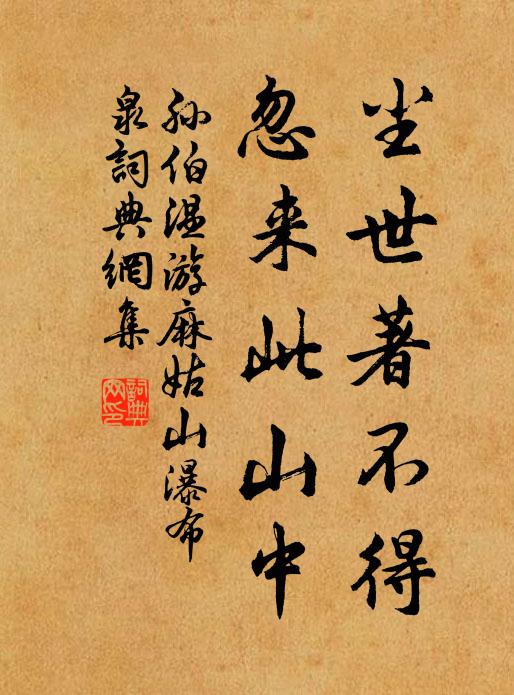 尘世著不得
忽来此山中
孙伯温游麻姑山瀑布
泉詞典網集
詞典网印